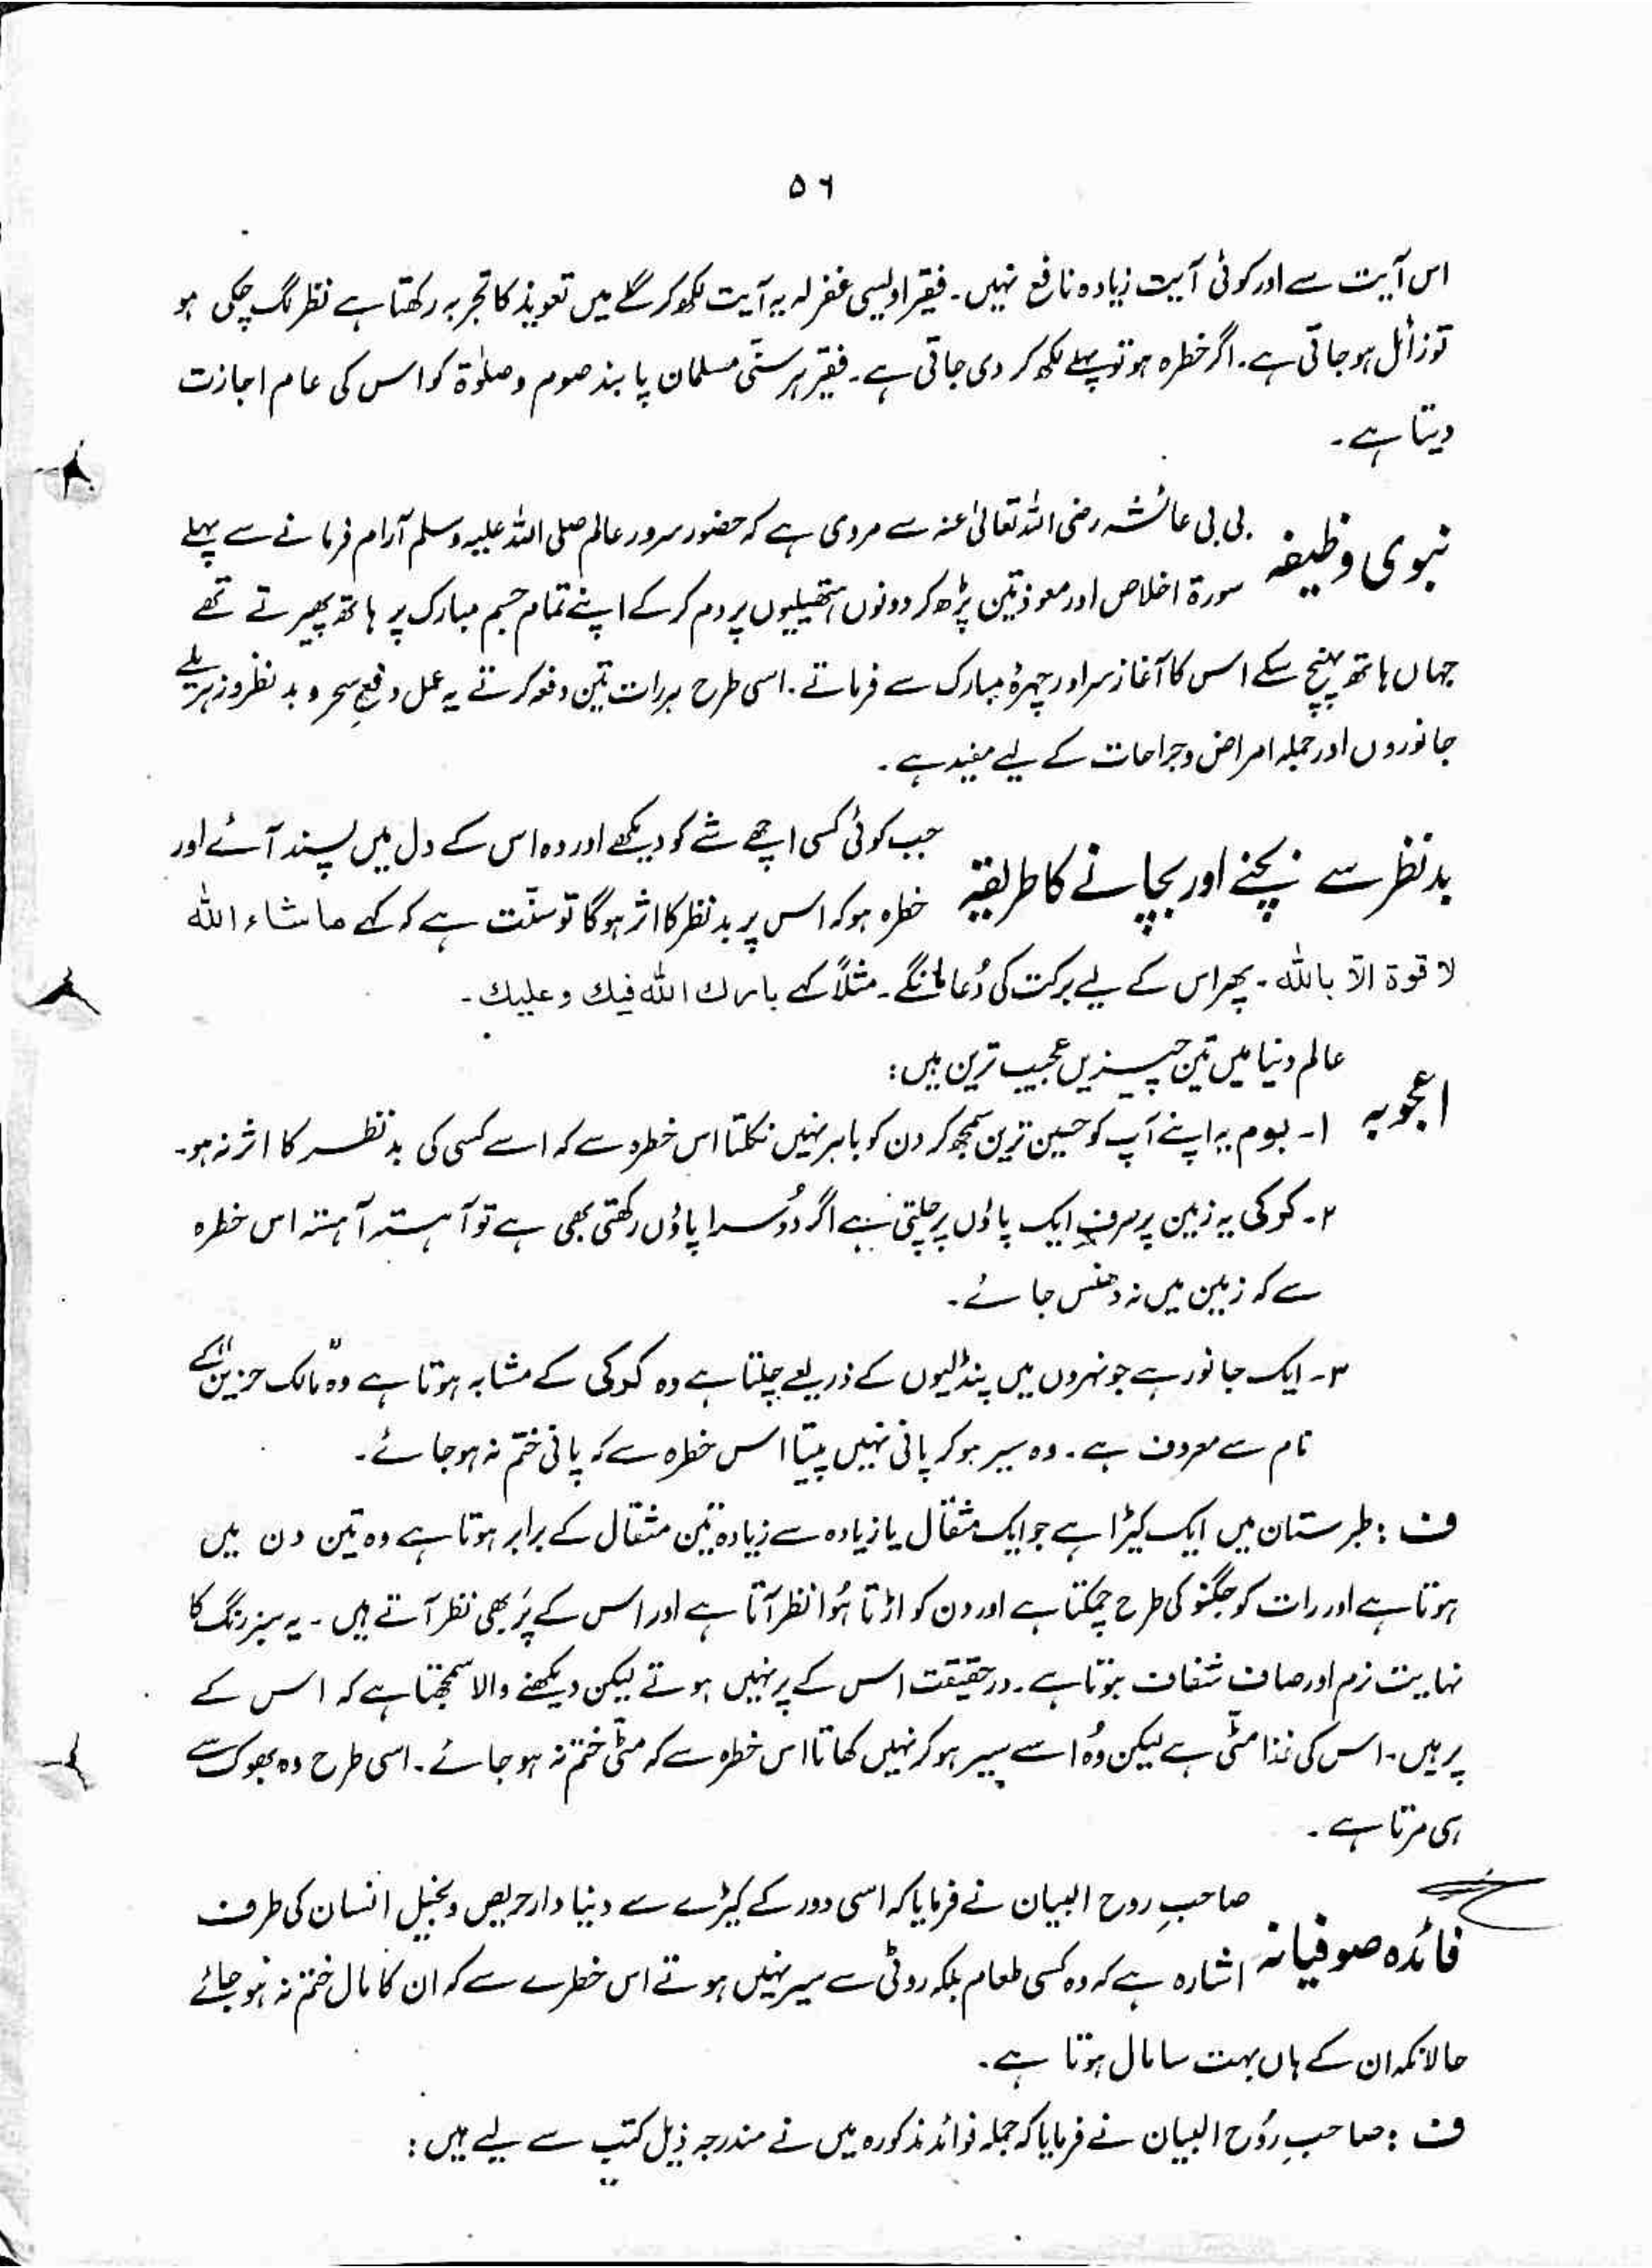 ۵۶
اس آیت سے اور کوئی آیت زیادہ نافع نہیں۔ فقیر اویسی غفرلہ یہ آیت لکھ کر گلے میں تعویذ کا تجربہ رکھتا ہے نظر لگ چکی ہو
تو زائل ہو جاتی ہے۔ اگر خطرہ ہو تو پہلے لکھ کر دی جاتی ہے۔ فقیر ہر سنّی مسلمان پابند صوم و صلوٰۃ کو اس کی عام اجازت
دیتا ہے۔
نبوی وظیفہ بی بی عائشہ رضی اللہ تعالیٰ عنہ سے مروی ہے کہ حضور سرور عالم صلی اللہ علیہ وسلم آرام فرمانے سے پہلے
سورۃ اخلاص اور معوذتین پڑھ کر دونوں ہتھیلیوں پر دم کر کے اپنے تمام جسم مبارک پر ہاتھ پھیرتے تھے
جہاں ہاتھ پہنچ سکے اس کا آغاز سر اور چہرۂ مبارک سے فرماتے۔ اسی طرح ہر رات تین دفعہ کرتے یہ عمل دفعِ سحر و بد نظر و زہریلے
جانوروں اور جملہ امراض و جراحات کے لیے مفید ہے۔
بدنظر سے بچنے اور بچانے کا طریقہ جب کوئی کسی اچھے شے کو دیکھے اور وہ اس کے دل میں پسند آئے اور
خطرہ ہو کہ اس پر بد نظر کا اثر ہوگا تو سنّت ہے کہ کہے ماشاء اللہ
لا قوۃ الّا باللہ۔ پھر اس کے لیے برکت کی دُعا مانگے۔ مثلاً کہے بارك اللہ فيك وعليك۔
عالم دنیا میں تین چیزیں عجیب ترین ہیں:
اعجوبہ ۱۔ بوم یہ اپنے آپ کو حسین ترین سمجھ کر دن کو باہر نہیں نکلتا اس خطرہ سے کہ اسے کسی کی بد نظر کا اثر نہ ہو۔
۲۔ کوکی یہ زمین پر صرف ایک پاؤں پر چلتی ہے اگر دُوسرا پاؤں رکھتی بھی ہے تو آہستہ آہستہ اس خطرہ
سے کہ زمین میں نہ دھنس جائے۔
۳۔ ایک جانور ہے جو نہروں میں پنڈلیوں کے ذریعے چلتا ہے وہ کوکی کے مشابہ ہوتا ہے وہ "مالک حزین" کے
نام سے معروف ہے۔ وہ سیر ہو کر پانی نہیں پیتا اس خطرہ سے کہ پانی ختم نہ ہو جائے۔
ف : طبرستان میں ایک کیڑا ہے جو ایک مثقال یا زیادہ سے زیادہ تین مثقال کے برابر ہوتا ہے وہ تین دن میں
ہوتا ہے اور رات کو جگنو کی طرح چمکتا ہے اور دن کو اڑتا ہُوا نظر آتا ہے اور اس کے پَر بھی نظر آتے ہیں۔ یہ سبز رنگ کا
نہایت نرم اور صاف شفاف ہوتا ہے۔ درحقیقت اس کے پر نہیں ہوتے لیکن دیکھنے والا سمجھتا ہے کہ اس کے
پر ہیں۔ اس کی غذا مٹی ہے لیکن وُہ اسے سیر ہو کر نہیں کھاتا اس خطرہ سے کہ مٹی ختم نہ ہو جائے۔ اسی طرح وہ بھوک سے
ہی مرتا ہے۔
فائدہ صوفیانہ صاحبِ روح البیان نے فرمایا کہ اسی دور کے کیڑے سے دنیا دار حریص و بخیل انسان کی طرف
اشارہ ہے کہ وہ کسی طعام بلکہ روٹی سے سیر نہیں ہوتے اس خطرے سے کہ ان کا مال ختم نہ ہو جائے
حالانکہ ان کے ہاں بہت سا مال ہوتا ہے۔
ف : صاحبِ رُوح البیان نے فرمایا کہ جملہ فوائد مذکورہ میں نے مندرجہ ذیل کتب سے لیے ہیں: